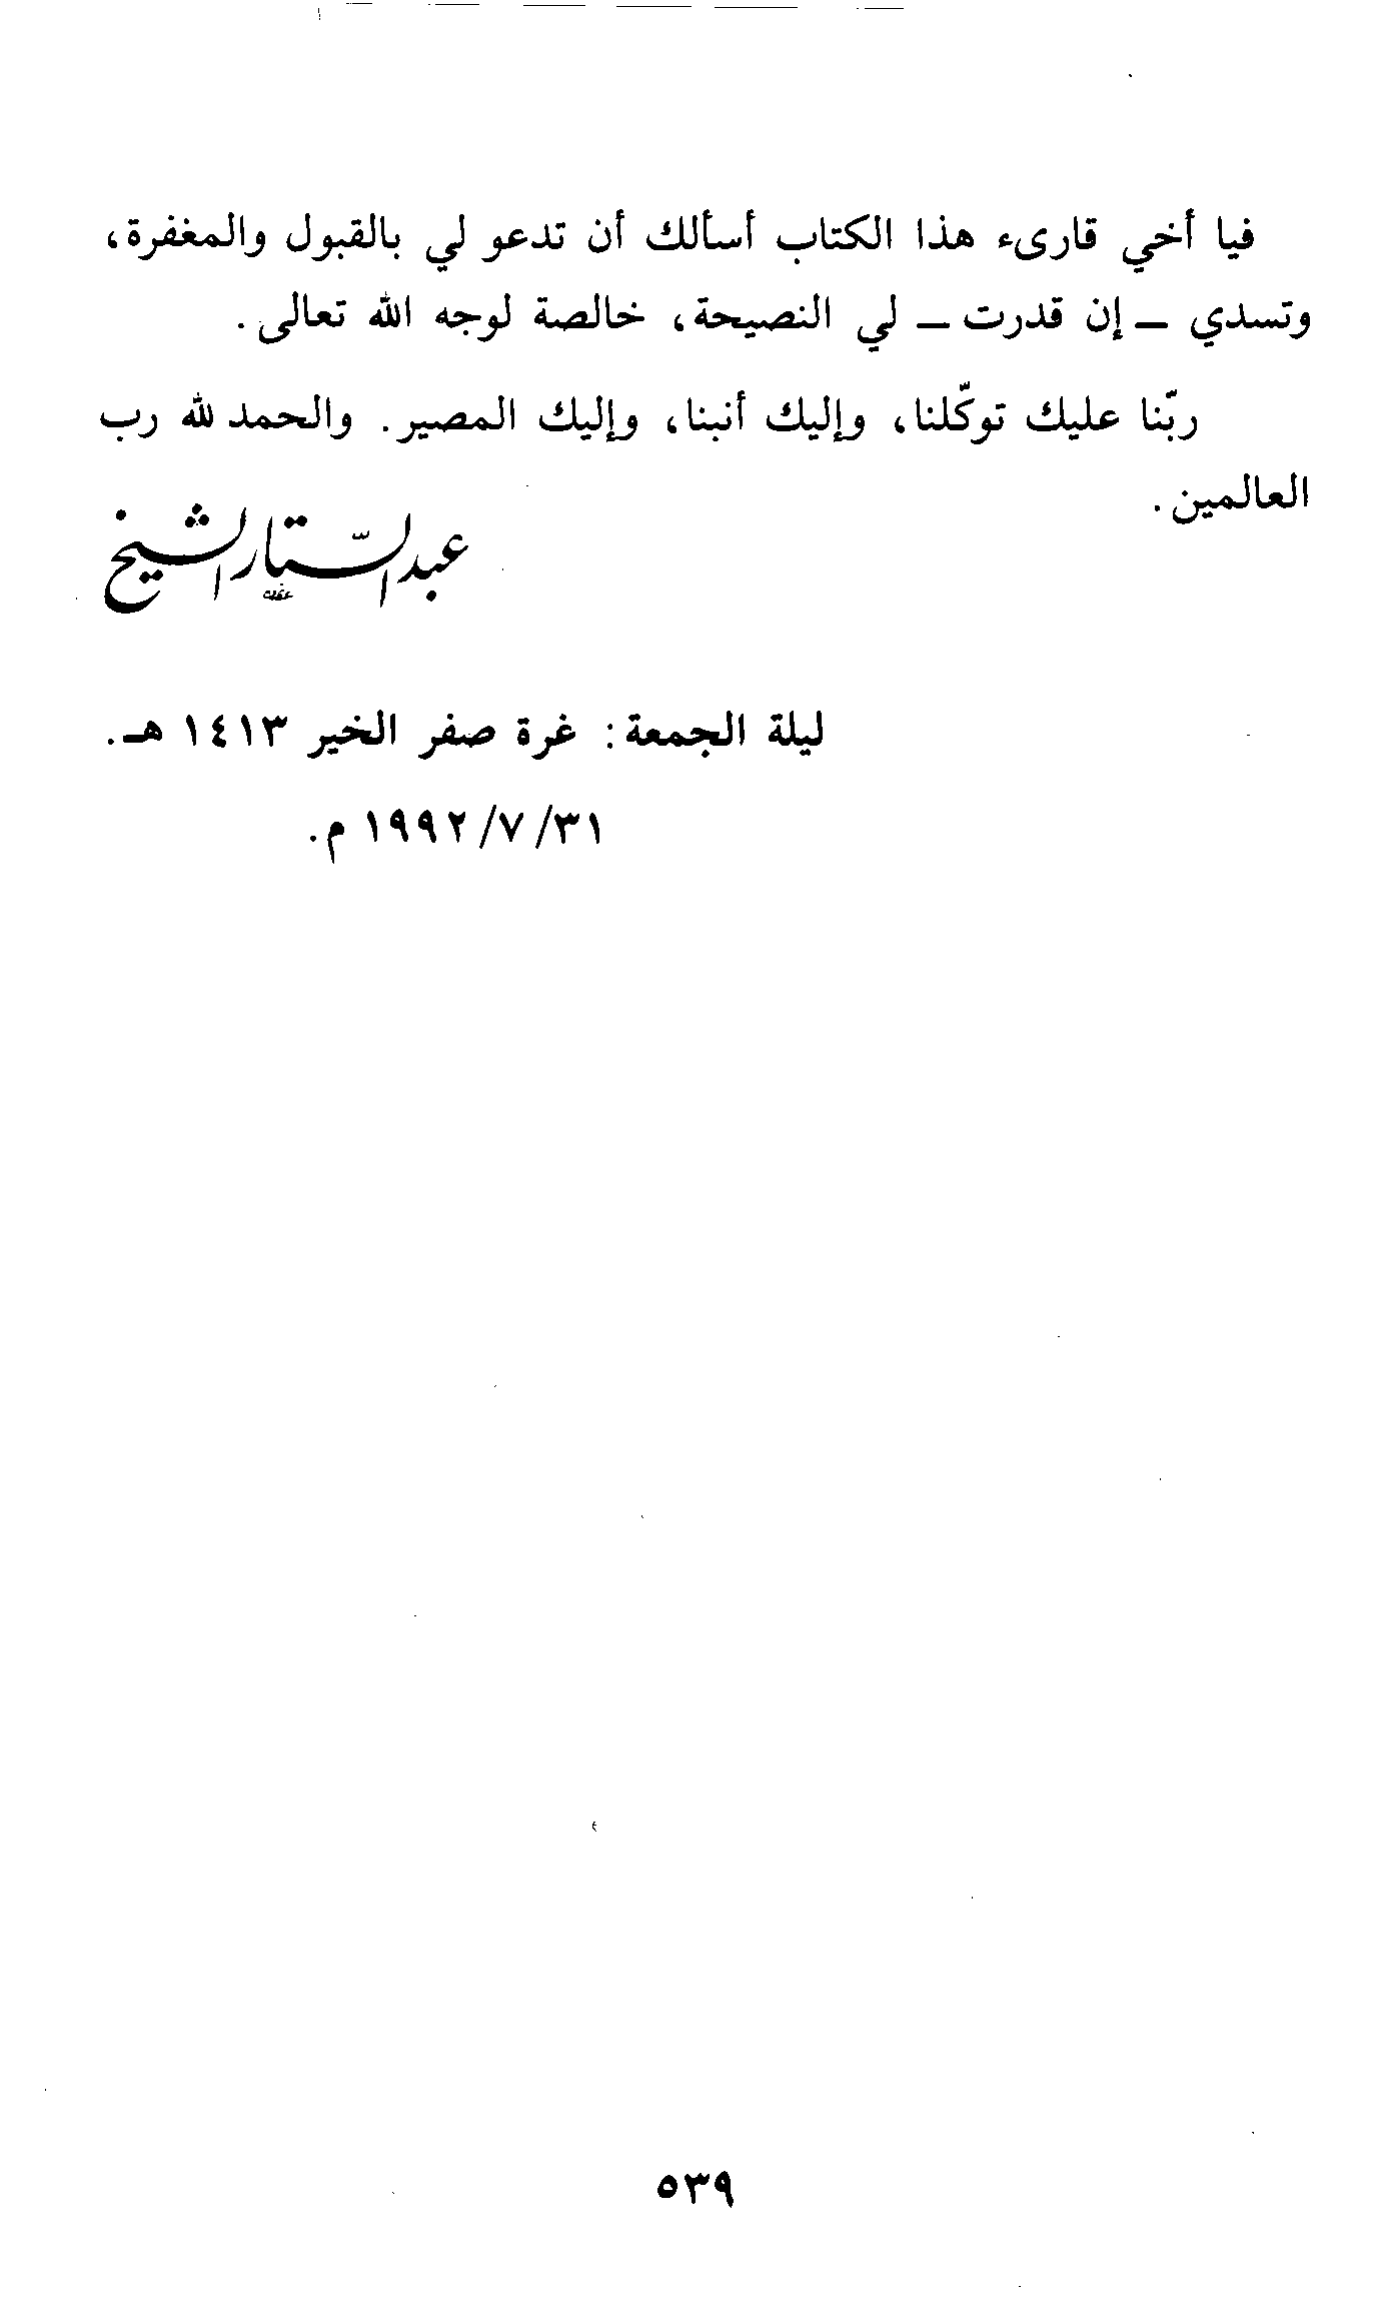 فيا أخي قارىء هذا الكتاب أسألك أن تدعو لي بالقبول والمغفرة،
وتسدي ــ إن قدرت ــ لي النصيحة، خالصة لوجه الله تعالى.
ربّنا عليك توكّلنا، وإليك أنبنا، وإليك المصير. والحمد لله رب
العالمين.
عبد الستّار الشيخ
ليلة الجمعة: غرة صفر الخير ١٤١٣ هـ.
٣١/٧/١٩٩٢ م.
٥٣٩